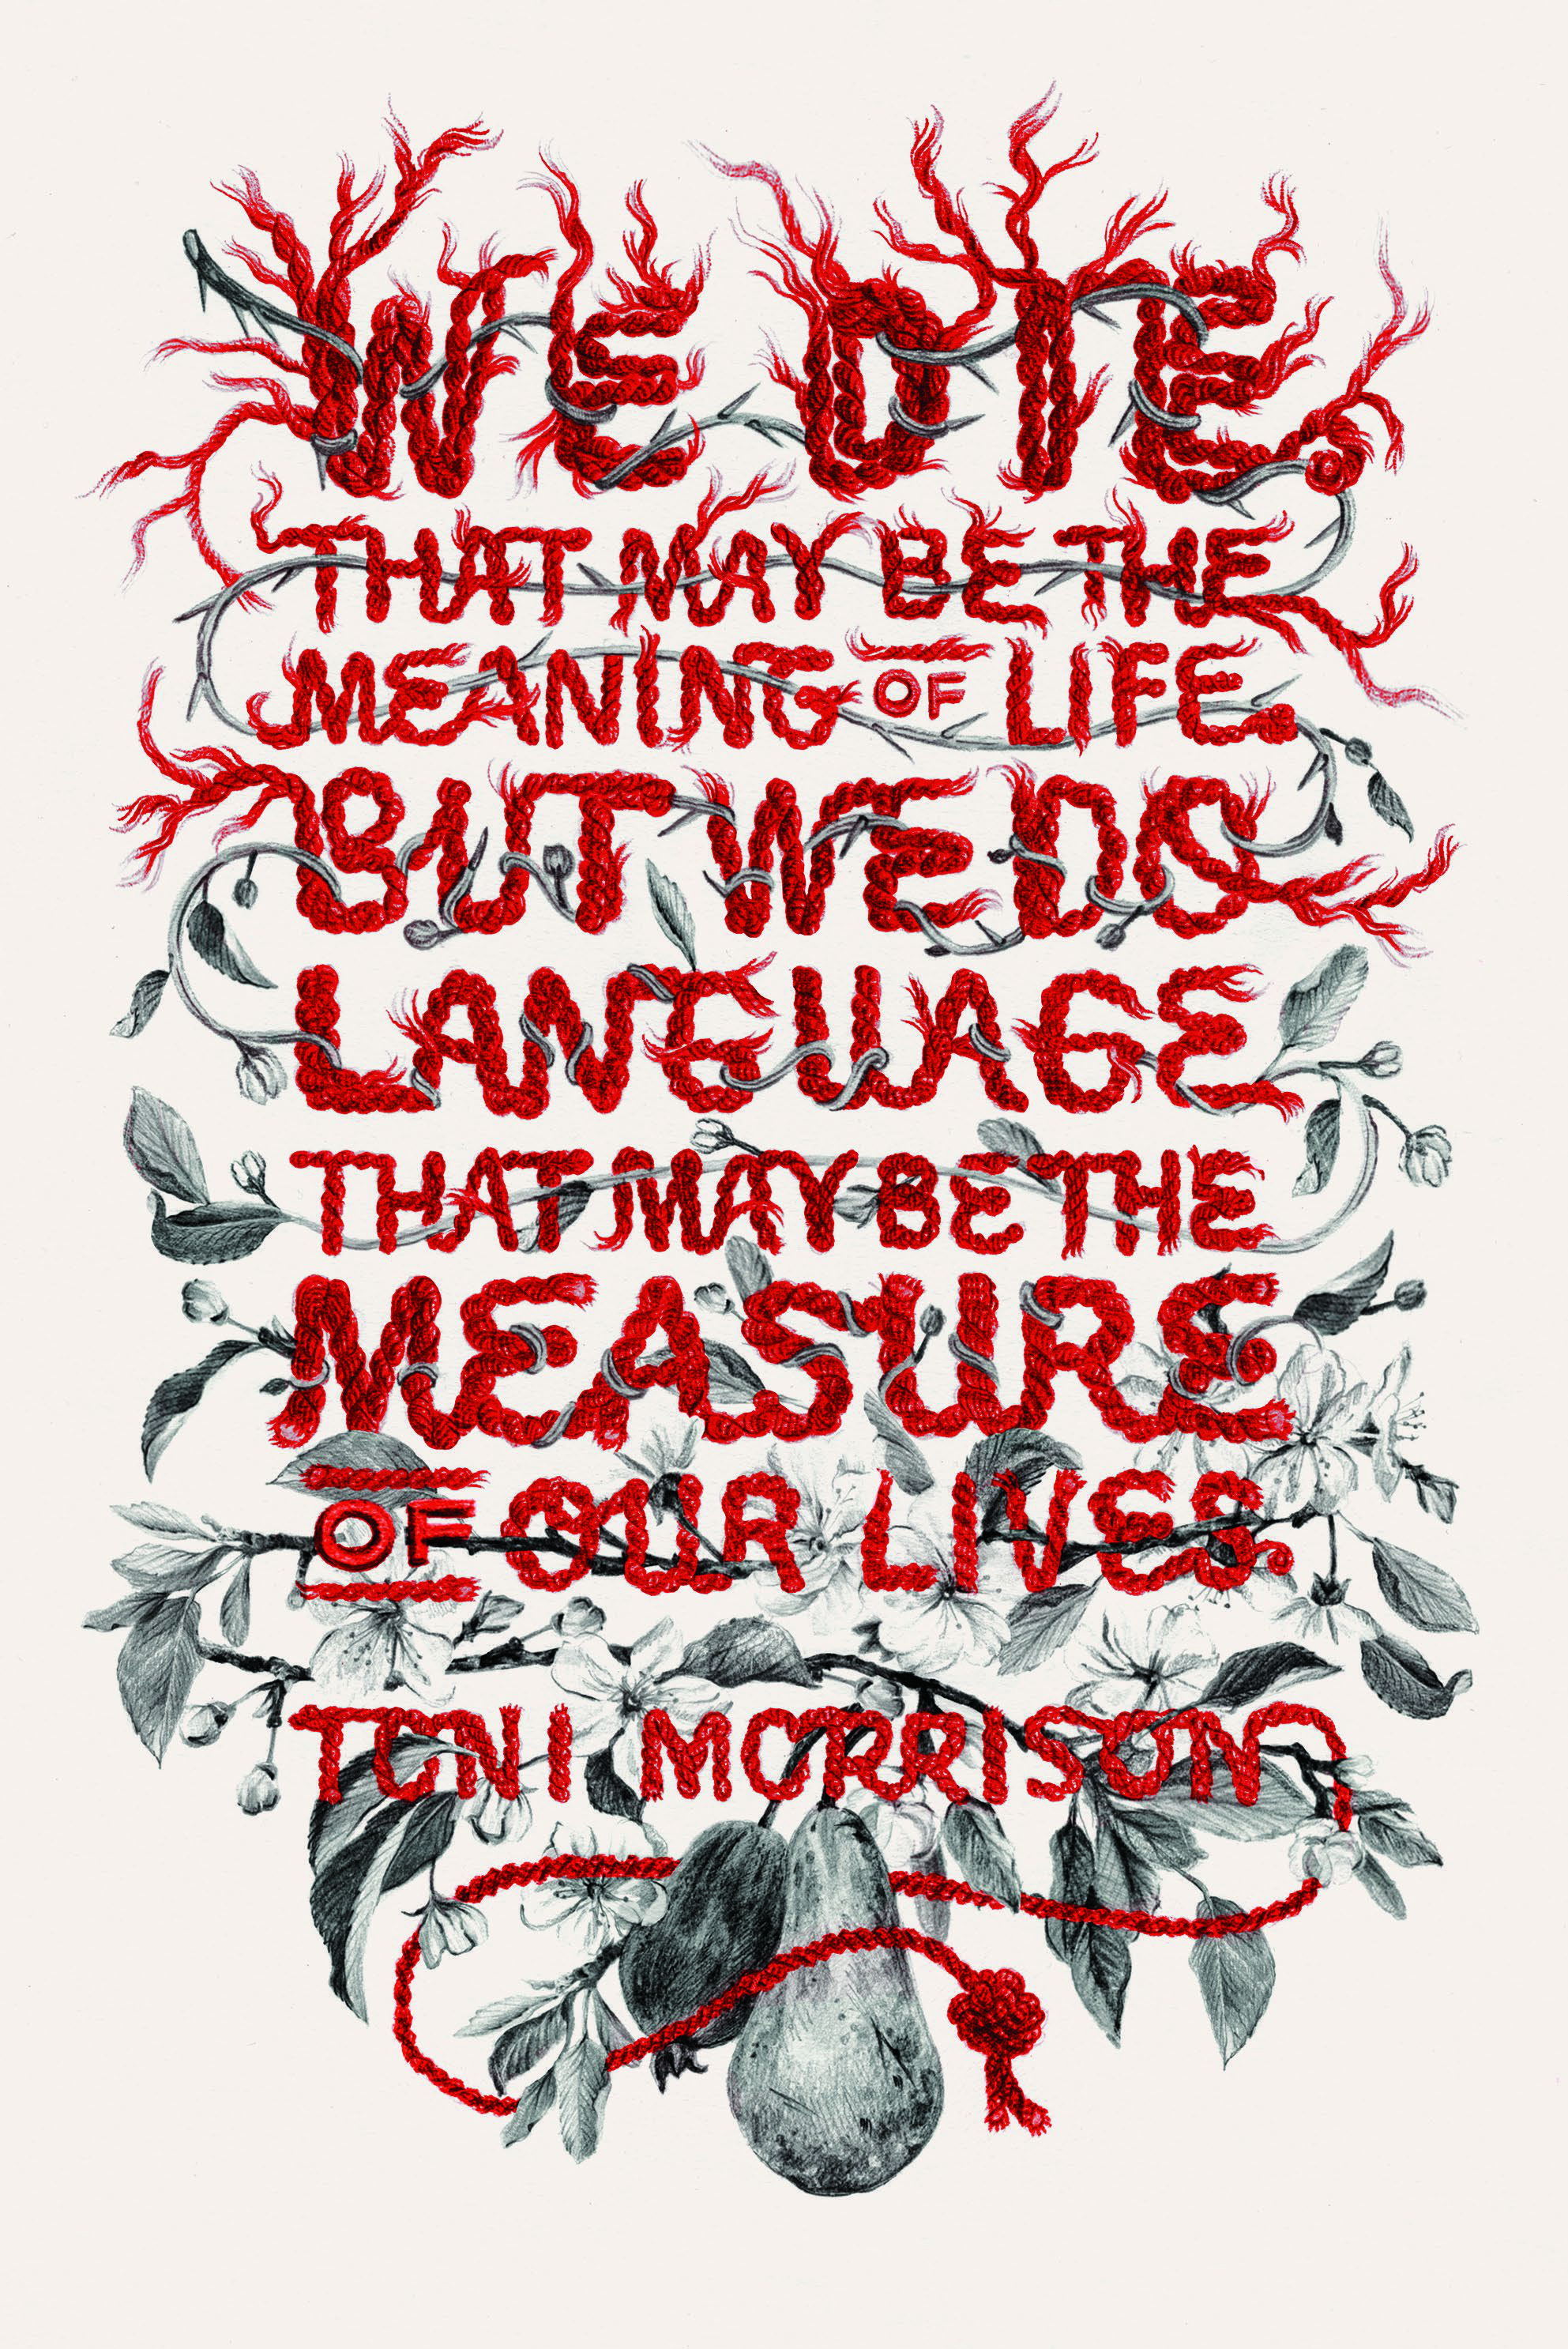 WE DIE.
THAT MAY BE THE
MEANING OF LIFE.
BUT WE DO
LANGUAGE
THAT MAY BE THE
MEASURE
OF OUR LIVES.
TONI MORRISON